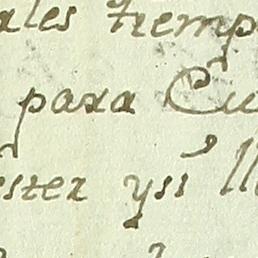 ales tiemp
para Cu
ester ysi ll